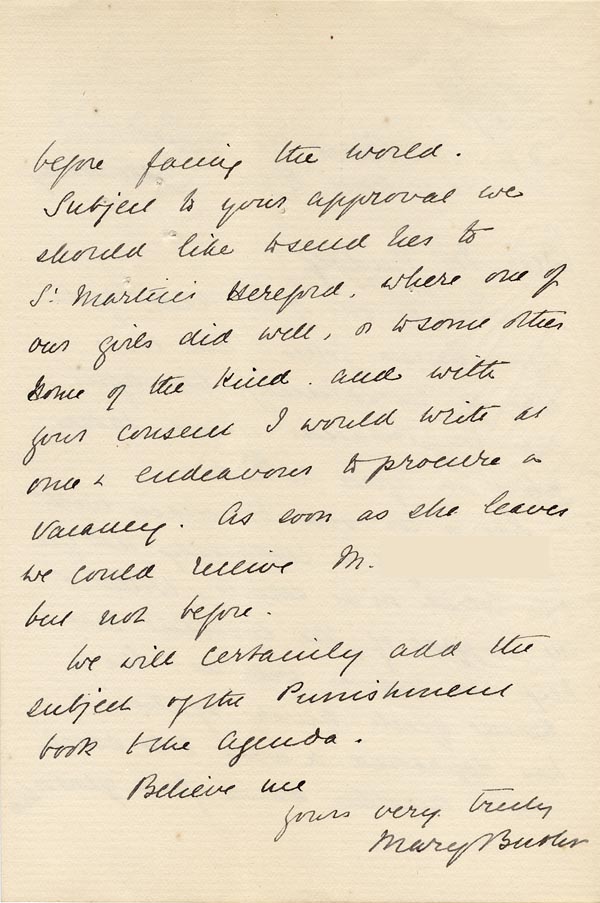 before facing the world.
Subject to your approval we
should like to send her to
St Martin's Hereford, where one of
our girls did well, or to some other
home of the kind. and with
your consent I would write at
once & endeavour to procure a
vacancy. As soon as she leaves
we could receive M.
but not before.
We will certainly add the
subject of the Punishment
book to the Agenda.
Believe me
yours very truly
Mary Butler